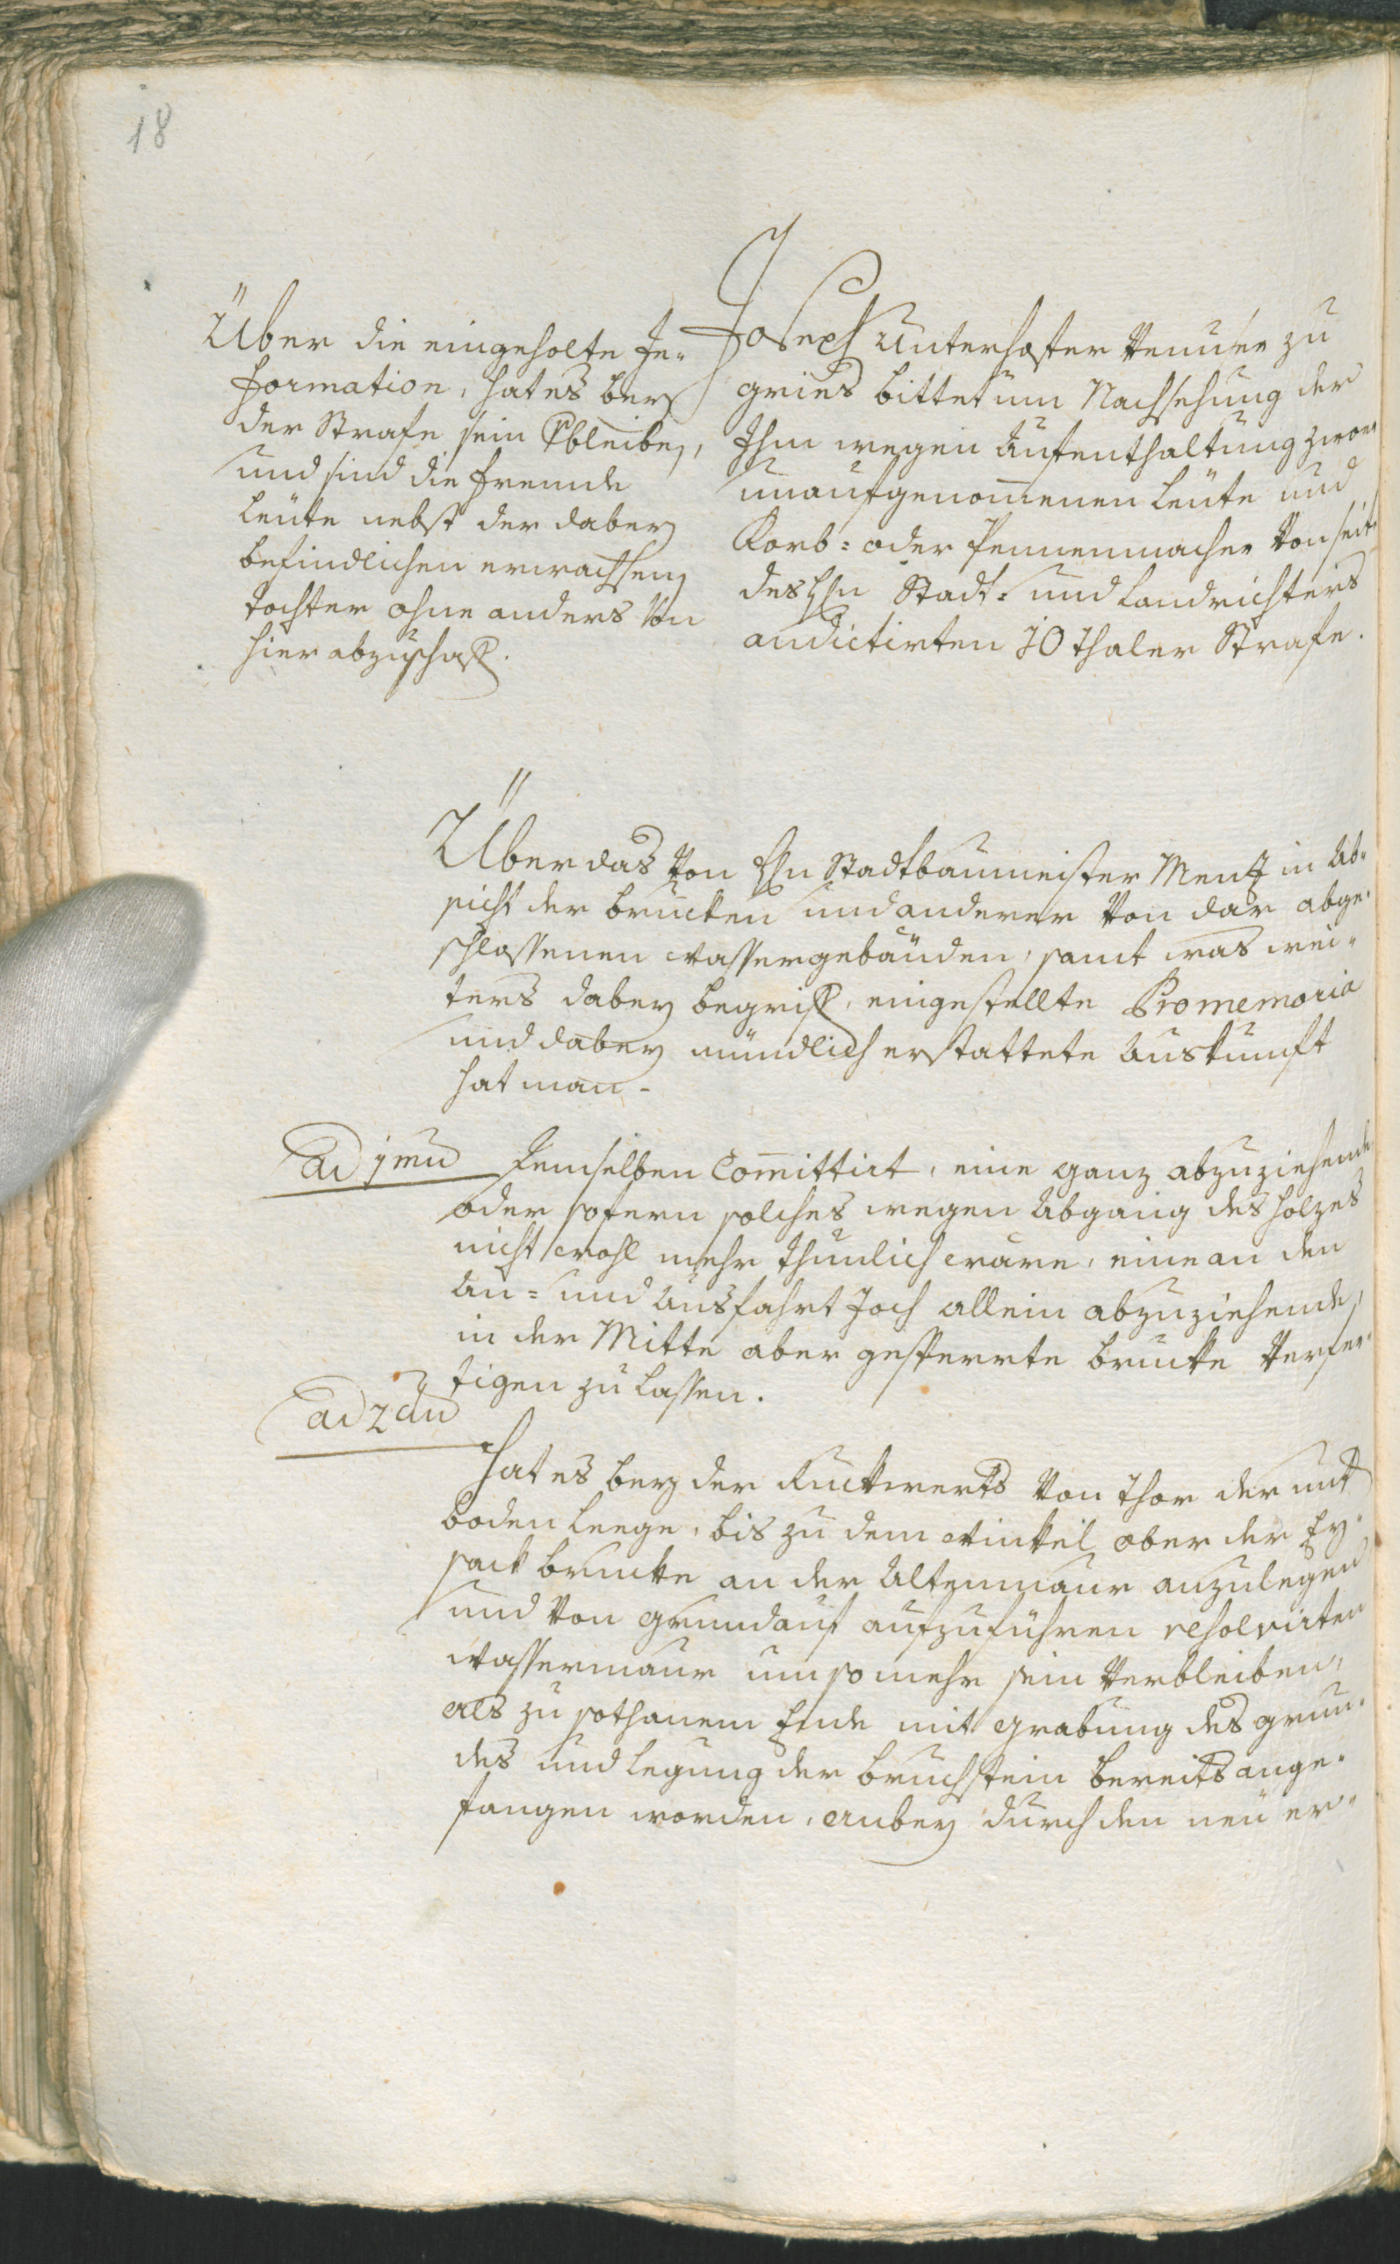 18
Über die eingeholte In-
formation, hat es bey
der Strafe sein Verbleiben,
und sind die fremde
Leüte nebst der dabey
befindlichen erwachsenen
tochter ohne anders von
hier abzuschaffen.
Joseph Unterhofer zu
gries bittet um Nachsehung der
Ihm wegen Aufenthaltung zwoer
unaufgenommenen Leüte und
Korb= oder Pennenmacher von seite
des Hrn Stadt= und Landrichters
andictirten 10 thaler Strafe.
Über das von Hrn Stadtbaumeister Menz in Ab-
sicht der brucken und anderer von dar abge-
schlossenen wassergebäuden, samt was wei-
ters dabey begriffen, eingestellte Promemoria
und dabey mündlich erstattete Auskunft
hat man-
ad 1mu Demselben Committirt, eine ganz abzuziehende
oder sofern solches wegen Abgang des holzes
nicht wohl mehr thunlich wäre, eine an den
An= und Ausfahrt Joch allein abzuziehende,
in der Mitte aber gesperrte brucke verfer-
tigen zu lassen.
ad 2du
Hat es bey der Ruckwerts von thor der
boden Leege, bis zu dem winkel ober der Ey-
sack brucke an der Altenmaur anzulegen
und von grundauf aufzuführen resolvirten
wassermaur um so mehr sein Verbleiben,
als zu sothanem Ende mit grabung des grun-
des und legung der bruchstein bereits ange-
fangen worden, anbey durch den neü er-